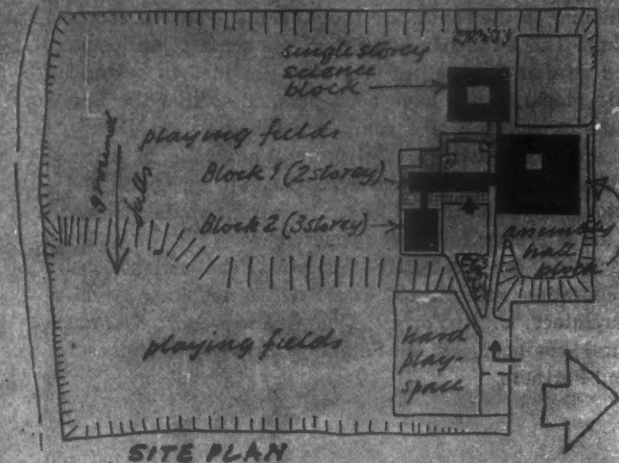 single storey
science
block
playing fields
ground falls
Block 1 (2 storey)
Block 2 (3 storey)
assembly
hall
block
playing fields
hard
play-
space
SITE PLAN